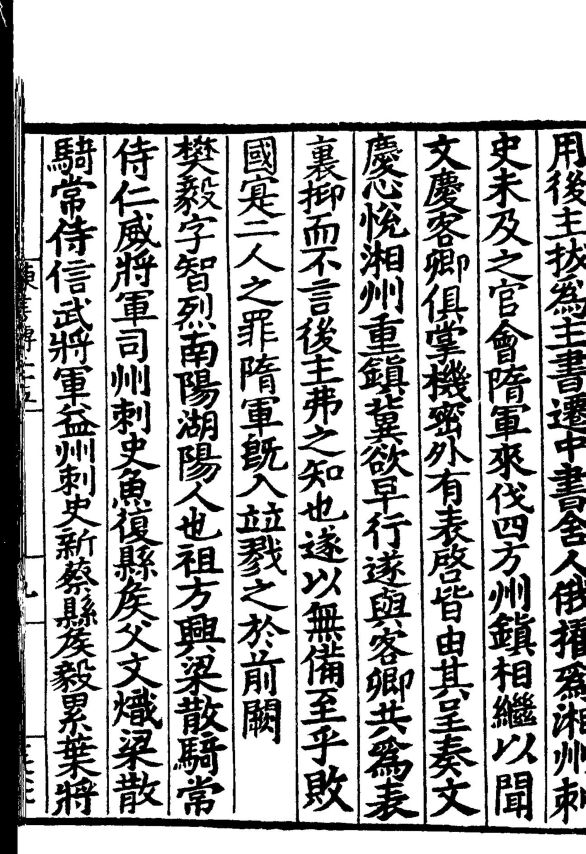 用後主拔爲主書遷中書舍人俄擢爲湘州刺
史未及之官會隋軍來伐四方州鎮相繼以聞
文慶客卿俱掌機密外有表啓皆由其呈奏文
慶心悅湘州重鎮冀欲早行遂與客卿共爲表
裏抑而不言後主弗之知也遂以無備至乎敗
國寔二人之罪隋軍旣入竝戮之於前闕
樊毅字智烈南陽湖陽人也祖方興梁散騎常
侍仁威將軍司州刺史魚復縣侯父文熾梁散
騎常侍信武將軍益州刺史新蔡縣侯毅累葉將